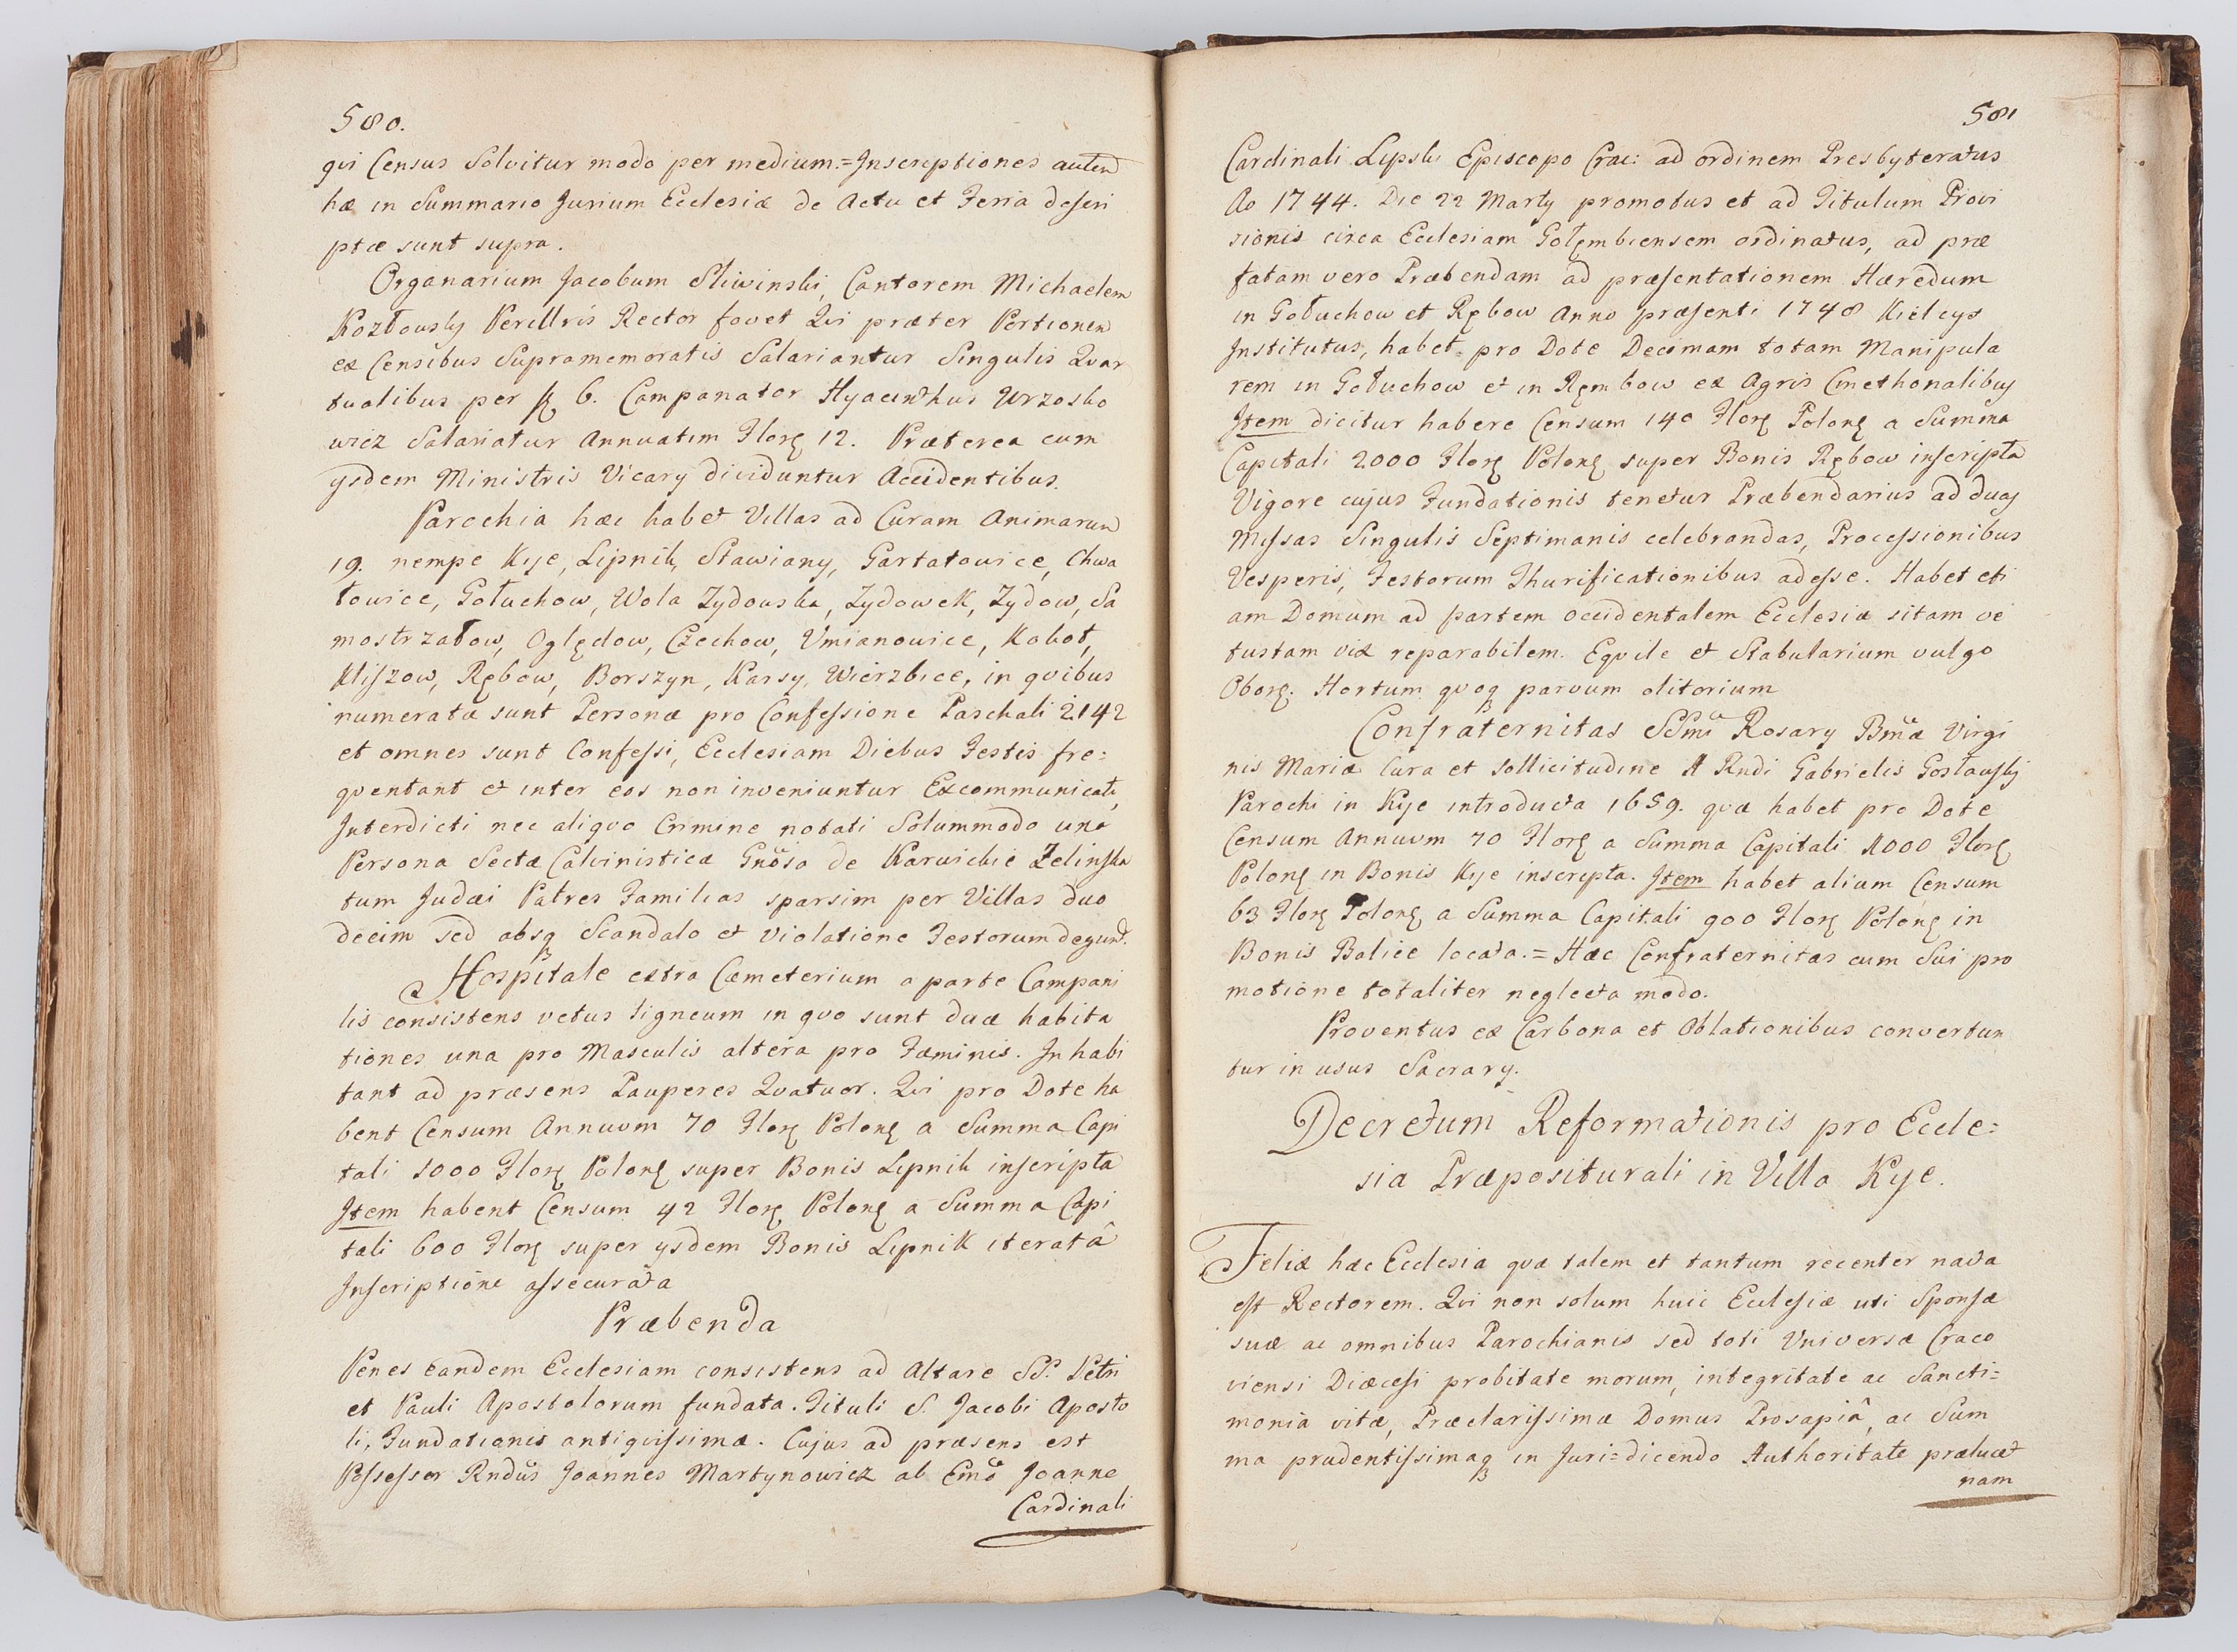 580.
qvi Census Solvitur modo per medium.= Inscriptiones autem
hæ in Summario Jurium Ecclesiæ de Actu et Feria descri
ptæ sunt supra.
Organarium Jacobum Sliwinski, Cantorem Michaelem
Kozłowsky Perillris Rector fovet Qvi præter Portionem
ex Censibus Supramemoratis Salariantur Singulis Qvar
tualibus per 6. Campanator Hyacinthus Wrzosko
wicz Salariatur Annuatim Flor 12. Præterea cum
ysdem Ministris Vicary dividuntur Accidentibus.
Parochia hæc habet Villas ad Curam Animarum
19. nempe Kije, Lipnik, Stawiany, Gartatowice, Chwa
łowice, Gołuchow, Wola Zydowska, Zydowek, Zydow, Sa
mostrzałow, Oględow, Czechow, Vmianowice, Kokot,
Kliszow, Rębow, Borszyn, Karsy, Wierzbice, in qvibus
numeratæ sunt Personæ pro Confessione Paschali 2142
et omnes sunt Confessi, Ecclesiam Diebus Festis fre=
qventant et inter eos non inveniuntur Excommunicati,
Interdicti nec aliqvo Crimine notati Solummodo una
Persona Sectæ Calvinisticæ Gnosa de Karwickie Zelinska
tum Judæi Patres Familias sparsim per Villas duo
decim sed absq Scandalo et violatione Festorum degunt.
Hospitale extra Cæmeterium a parte Campani
lis consistens vetus ligneum in qvo sunt duæ habita
tiones una pro Masculis altera pro Fæminis. Inhabi
tant ad præsens Pauperes Qvatuor. Qvi pro Dote ha
bent Censum Annuum 70 Flor Polon a Summa Capi
tali 1000 Flor Polon super Bonis Lipnik inscripta
Item habent Censum 42 Flor Polon a Summa Capi
tali 600 Flor super ysdem Bonis Lipnik iteratâ
Inscriptione assecurata
Præbenda
Penes eandem Ecclesiam consistens ad Altare SS. Petri
et Pauli Apostolorum fundata. Tituli S. Jacobi Aposto
li, Fundationis antiqvissimæ. Cujus ad præsens est
Possessor Rndus Joannes Martynowicz ab Emo Joanne
Cardinali
581
Cardinali Lipski Episcopo Crac: ad ordinem Presbyteratus
Ao 1744. Die 22 Marty promotus et ad Titulum Provi
sionis circa Ecclesiam Gołembiensem ordinatus, ad præ
fatam vero Præbendam ad præsentationem Hæredum
in Gołuchow et Rębow Anno præsenti 1748 Kielcys
Institutus, habet pro Dote Decimam totam Manipula
rem in Gołuchow et in Rembow ex Agris Cmethonalibus
Item dicitur habere Censum 140 Flor Polon a Summa
Capitali 2000 Flor Polon super Bonis Rębow inscripta
Vigore cujus Fundationis tenetur Præbendarius ad duas
Missas Singulis Septimanis celebrandas, Processionibus
Vesperis, Festorum Thurificationibus adesse. Habet eti
am Domum ad partem occidentalem Ecclesiæ sitam ve
tustam vix reparabilem. Eqvile et Stabularium vulgo
Oborę. Hortum qvoq parvum olitorium
Confraternitas SSmi Rosary Bmæ Virgi
nis Mariæ Cura et sollicitudine A Rndi Gabrielis Gosławsky
Parochi in Kije introducta 1659. qvæ habet pro Dote
Censum Annuum 70 Flor a Summa Capitali 1000 Flor
Polon in Bonis Kije inscripta. Item habet alium Censum
63 Flor Polon a Summa Capitali 900 Flor Polon in
Bonis Balice locata.= Hæc Confraternitas cum Sui pro
motione totaliter neglecta modo.
Proventus ex Carbona et Oblationibus convertun
tur in usus Sacrary.
Decretum Reformationis pro Eccle=
sia Præpositurali in Villa Kije.
Felix hæc Ecclesia qvæ talem et tantum recenter nacta
est Rectorem. Qvi non solum huic Ecclesiæ uti Sponsæ
suæ ac omnibus Parochianis sed toti Universæ Craco
viensi Diæcesi probitate morum, integritate ac Sancti=
monia vitæ, Præclarissimæ Domus Prosapiâ, ac Sum
ma prudentissimaq in Juri=dicendo Authoritate prælucet
nam